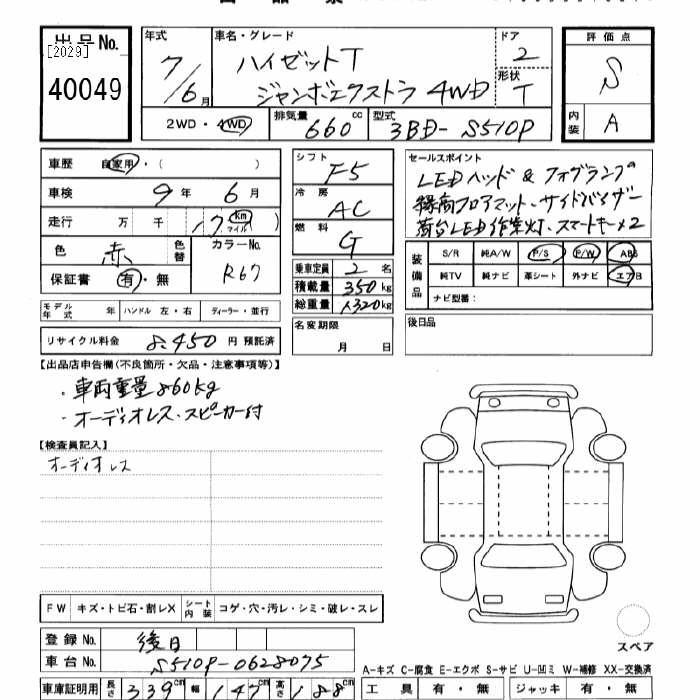 出品No.
[2029]
40049
年式
7/6月
車名・グレード
ハイゼットT
ジャンボエクストラ 4WD
ドア
2
形状
T
評価点
S
内装
A
2WD・4WD
排気量
660cc
型式
3BD-S510P
車歴 自家用・( )
車検 9年 6月
走行 万 千 17 Km マイル
色 赤 色替
カラーNo. R67
保証書 有・無
モデル年式 年 ハンドル 左・右 ディーラー・並行
リサイクル料金 8,450円 預託済
シフト F5
冷房 AC
燃料 G
乗車定員 2名
積載量 350kg
総重量 1,320kg
名変期限
月 日
セールスポイント
LEDヘッド & フォグランプ
縁高フロアマット、サイドバイザー
荷台LED作業灯、スマートキー×2
装備品
S/R 純A/W P/S P/W ABS
純TV 純ナビ 革シート 外ナビ エアB
ナビ型番:
後日品
【出品店申告欄(不良箇所・欠品・注意事項等)】
・車両重量860kg
・オーディオレス・スピーカー付
【検査員記入】
オーディオレス
FW キズ・トビ石・割レX シート内装 コゲ・穴・汚レ・シミ・破レ・スレ
登録No. 後日
車台No. S510P-0628075
車庫証明用 長さ 339cm 幅 147cm 高さ 188cm
スペア
A-キズ C-腐食 E-エクボ S-サビ U-凹ミ W-補修 XX-交換済
工具 有・無 ジャッキ 有・無